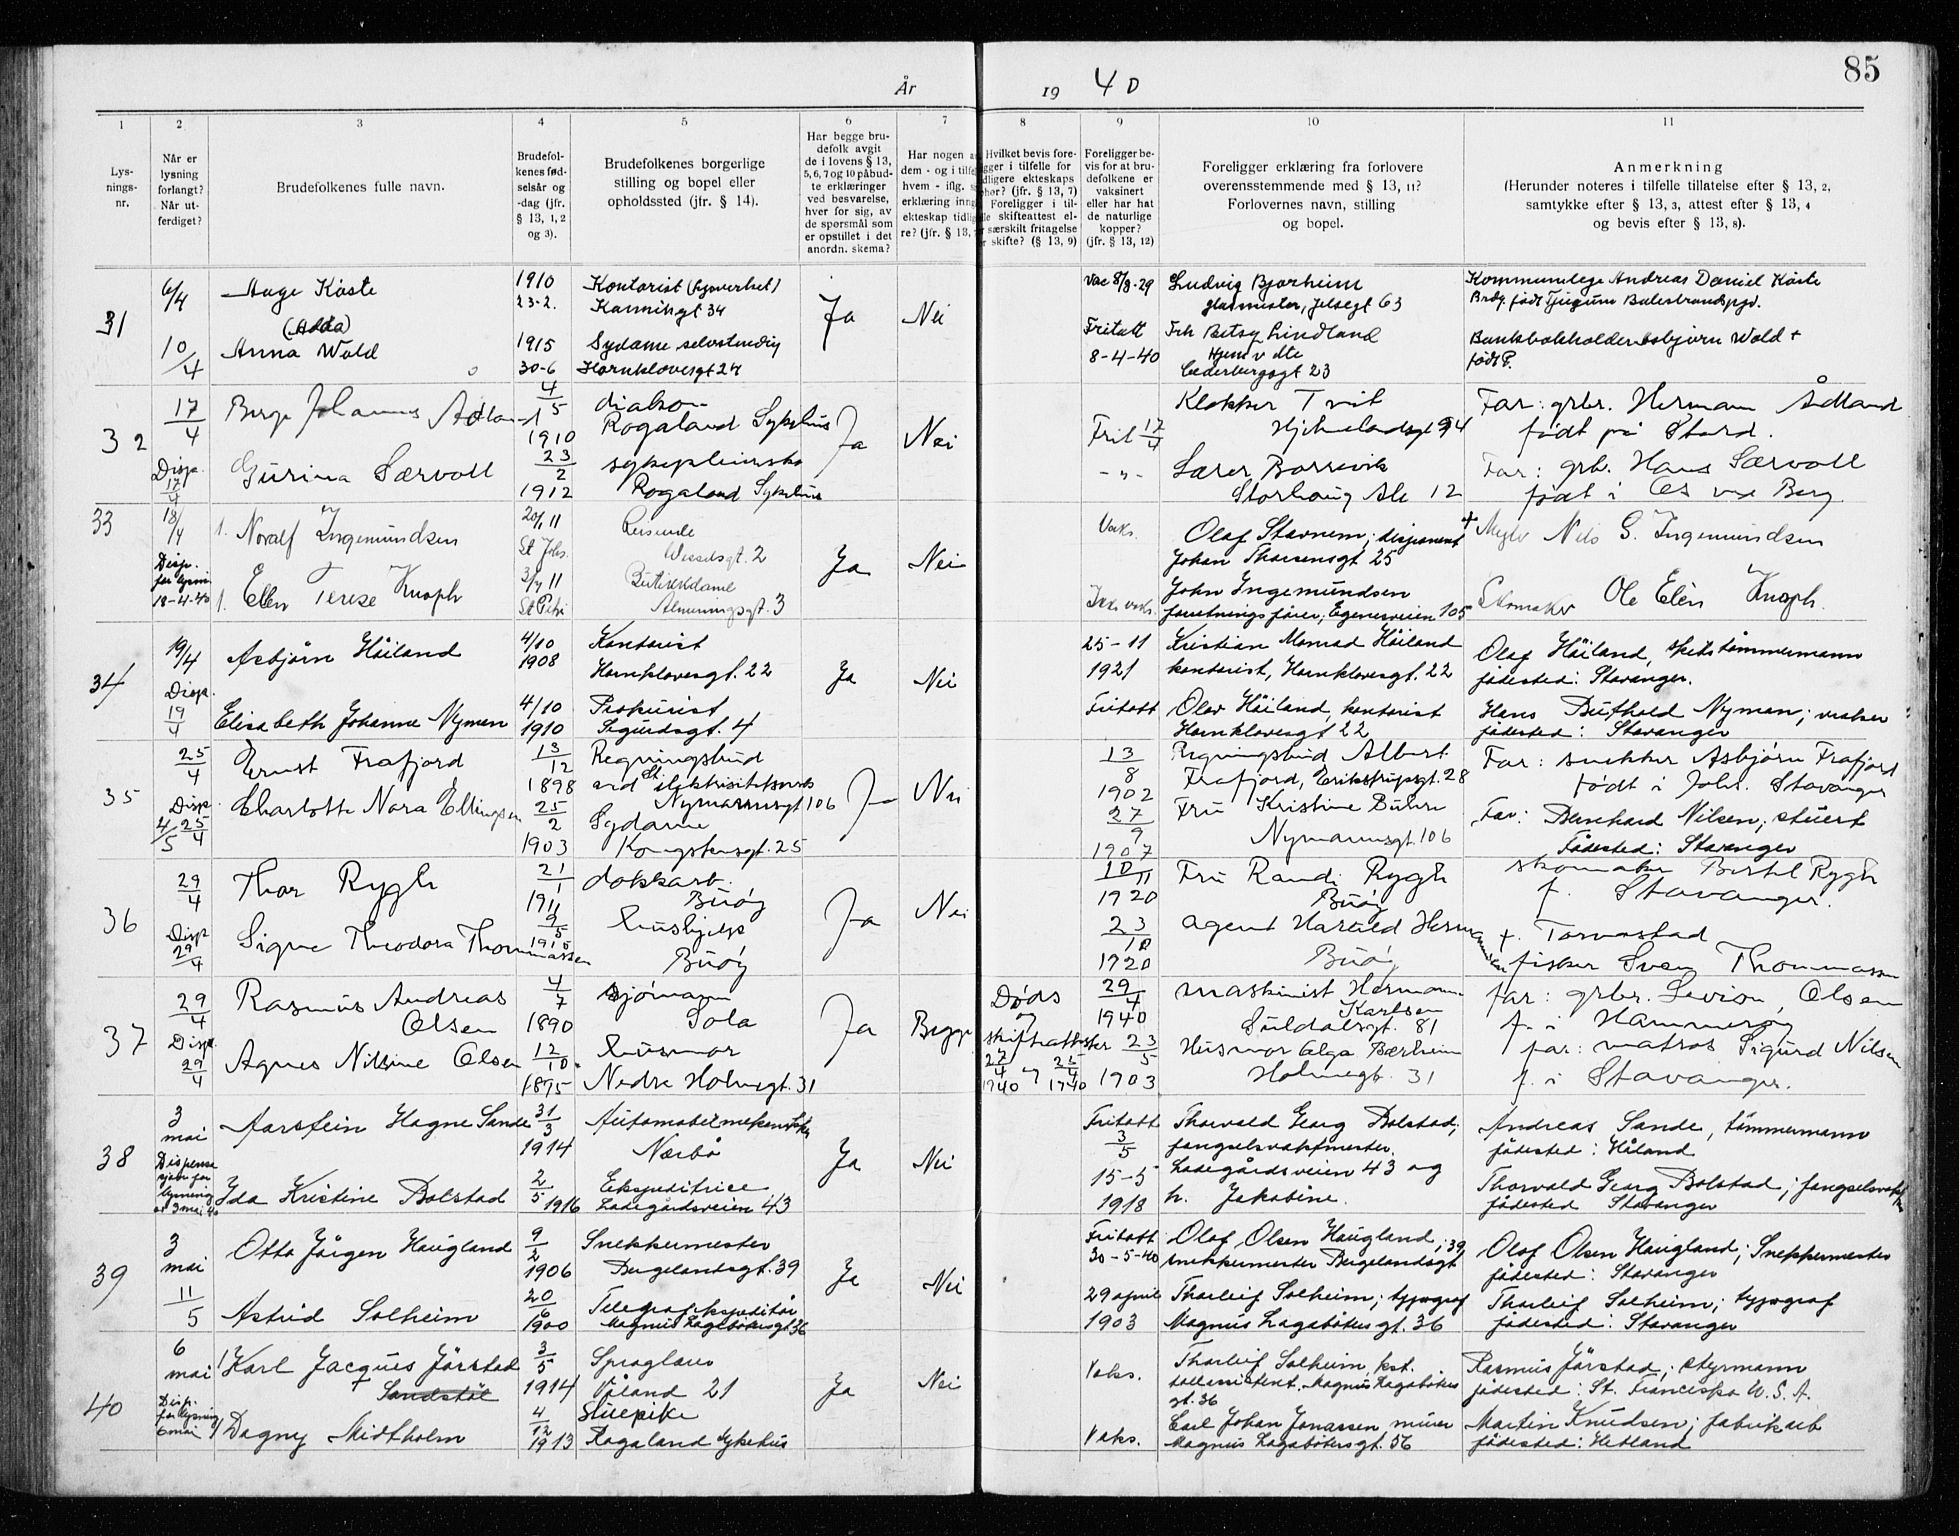 85
År 1940
1 2 3 4 5 6 7 8 9 10 11
Lysningsnr.
Når er lysning forlangt? Når utferdiget?
Brudefolkenes fulle navn.
Brudefolkenes fødselsår og -dag (jfr. § 13, 1, 2 og 3).
Brudefolkenes borgerlige stilling og bopel eller opholdssted (jfr. § 14).
Har begge brudefolk avgit de i lovens § 13, 5, 6, 7 og 10 påbudte erklæringer ved besvarelse, hver for sig, av de spørsmål som er opstillet i det anordn. skema?
Har nogen a
dem - og i tilfe
hvem - iflg. s
erklæring inng
ekteskap tidlig
re? (jfr. § 13,
Hvilket bevis fore-
gger i tilfelle for
dligere ekteskaps
phør? (jfr. § 13, 7)
Foreligger i til-
lle skifteattest el-
særskilt fritagelse
skifte? (§ 13, 9)
Foreligger bevis for at brudefolkene er vaksinert eller har hat de naturlige kopper? (jfr. § 13, 12)
Foreligger erklæring fra forlovere overensstemmende med § 13, 11? Forlovernes navn, stilling og bopel.
Anmerkning
(Herunder noteres i tilfelle tillatelse efter § 13, 2, samtykke efter § 13, 3, attest efter § 13, 4 og bevis efter § 13, 8).
31
6/4
10/4
Aage Kåste
(Adda)
Anna Wold
1910
23-2.
1915
30-6
Kontorist
Karmøygt 34
Sydame selvstendig
Hornklovesgt 27
Ja
Nei
Vac 8/8-29
Fritatt
8-4-40
Ludvig Bjorheim
glasmester, Jelsagt 63
Frk Betsy Lindland
Hjem v dte
Cederbergsgt 23
Kommunelege Andreas Daniel Kåste
Brdg. født Tjugum Balestrand
Bankbokholder Asbjørn Wold +
født P.
32
17/4
Disp.
17/4
Berge Johannes Ådland
Gurina Særvoll
4/5
1910
23/2
1912
diakon
Rogaland Sykehus
sykepleierske
Rogaland Sykehus
Ja
Nei
Frit 17/4
-"-
Klokker Tveit
Hjelmelandsgt 94
Lærer Borrevik
Storhaug Alle 12
Far: grbr. Herman Ådland
født på Stord.
Far: grb. Hans Særvoll
født i Os v/ Berg.
33
18/4
Disp.
for lysning
18-4-40
1. Noralf Ingemundsen
1. Ellen Terese Knoph
20/1 11
St Joh.
3/7 11
St Petri
Reisende
Wesselsgt. 2
Butikkdame
Almenningsgt. 3
Ja
Nei
Vaks.
Ikke vaks.
Olaf Stavnem, disponent
Johan Thorsensgt 25
John Ingemundsen
forretningsfører, Egenesveien 105
+ Megler Nils G. Ingemundsen
Skomaker Ole Elen Knoph.
34
19/4
Disp.
19/4
Asbjørn Høiland
Elisabeth Johanne Nyman
4/10
1908
4/10
1910
Kontorist
Hornklovesgt. 22
Prokurist
Sigurdsgt. 4
Ja
Nei
25-11
1921
Fritatt
Kristian Monrad Høiland
kontorist, Hornklovesgt. 22
Olav Høiland, kontorist
Hornklovesgt 22
Olaf Høiland, skibstømmermann
fødested: Stavanger.
Hans Buthold Nyman; vraker
fødested: Stavanger
35
25/4
Disp
4/5 25/4
Ernst Frafjord
Charlotte Nora Ellingsen
13/12
1898
25/2
1903
Regningsbud
ved St. elektrisitetsverk
Nymannsgt 106
Sydame
Kongstensgt. 25
Ja
Nei
13/8
1902
27/9
1907
Regningsbud Albert
Frafjord, Erikstrupsgt. 28
Fru Kristine Buhre
Nymannsgt. 106
Far: snekker Asbjørn Frafjord
født i Joh. Stavanger
Far: Bernhard Nilsen; stuert
Fødested: Stavanger
36
29/4
Disp
29/4
Thor Rygh
Signe Theodora Thommassen
21/1
1911
9/5
1915
dokkarb.
Buøy
hushjelp
Buøy
Ja
Nei
10/11
1920
23/10
1920
Fru Randi Rygh
Buøy
agent Harald Hermansen
Buøy
skomaker Bertil Rygh
f. Stavanger.
f. Torvastad
fisker Sven Thommassen
37
29/4
Disp.
29/4
Rasmus Andreas
Olsen
Agnes Nilsine Olsen
4/7
1890
12/10
1895
sjømann
Sola
husmor
Nedre Holmegt. 31
Ja
Begge
Døds
og
skifteattester
27/4 1940 og 25/4 1940
29/4
1940
23/5
1903
maskinist Hermann
Karlsen
Suldalsgt. 81
Husmor Olga Bærheim
Holmegt. 31
far: grbr. Sevrin Olsen
f. i Hammerøy
far: matros Sigurd Nilsen
f. i Stavanger.
38
3 mai
Dispensasjon for
lysning
3 mai 40
Aarstein Hagne Sande
Ida Kristine Bolstad
31/3
1914
2/5 1916
Automobilmekaniker
Nærbø
Ekspeditrice
Ladegårdsveien 43
Ja
Nei
Fritatt
3/5
15-5
1918
Thorvald Georg Bolstad;
fengselsvaktmester.
Ladegårdsveien 43 og
h. Jakobine.
Andreas Sande, tømmermann
fødested: Håland
Thorvald Georg Bolstad; fengselsvaktm
fødested Stavanger
39
3 mai
11/5
Otto Jørgen Haugland
Astrid Solheim
9/2
1906
20/6
1900
Snekkermester
Bergelandsgt. 39
Telegrafekspeditør
Magnus Lagabøtersgt 36
Ja
Nei
Fritatt
30-5-40
29 april
1903
Olaf Olsen Haugland; 39
snekkermester Bergelandsgt
Tharleif Solheim; typograf
Magnus Lagabøtersgt. 36
Olaf Olsen Haugland; Snekkermester
fødested: Stavanger
Tharleif Solheim; typograf
fødested: Stavanger
40
6 mai
Disp.
for lysning
6 mai
1/ Karl Jacques Jørstad
+ Sandstøl
1/ Dagny Midtholm
3/5
1914
4/12
1913
Våland 21
Stuepike
Rogaland Sykehus
Ja
Nei
Vaks.
Vaks.
Tharleif Solheim, kst.
tollassistent, Magnus Lagabøters
gt. 36
Carl Johan Jonassen, murer
Magnus Lagabøtersgt. 56
Rasmus Jørstad; styrmann
fødested: St. Francisko U.S.A.
Martin Knudsen; fabrikarb
fødested: Hetland